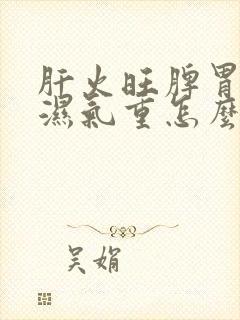 肝火旺脾胃
濕氣重怎麼
吴娟